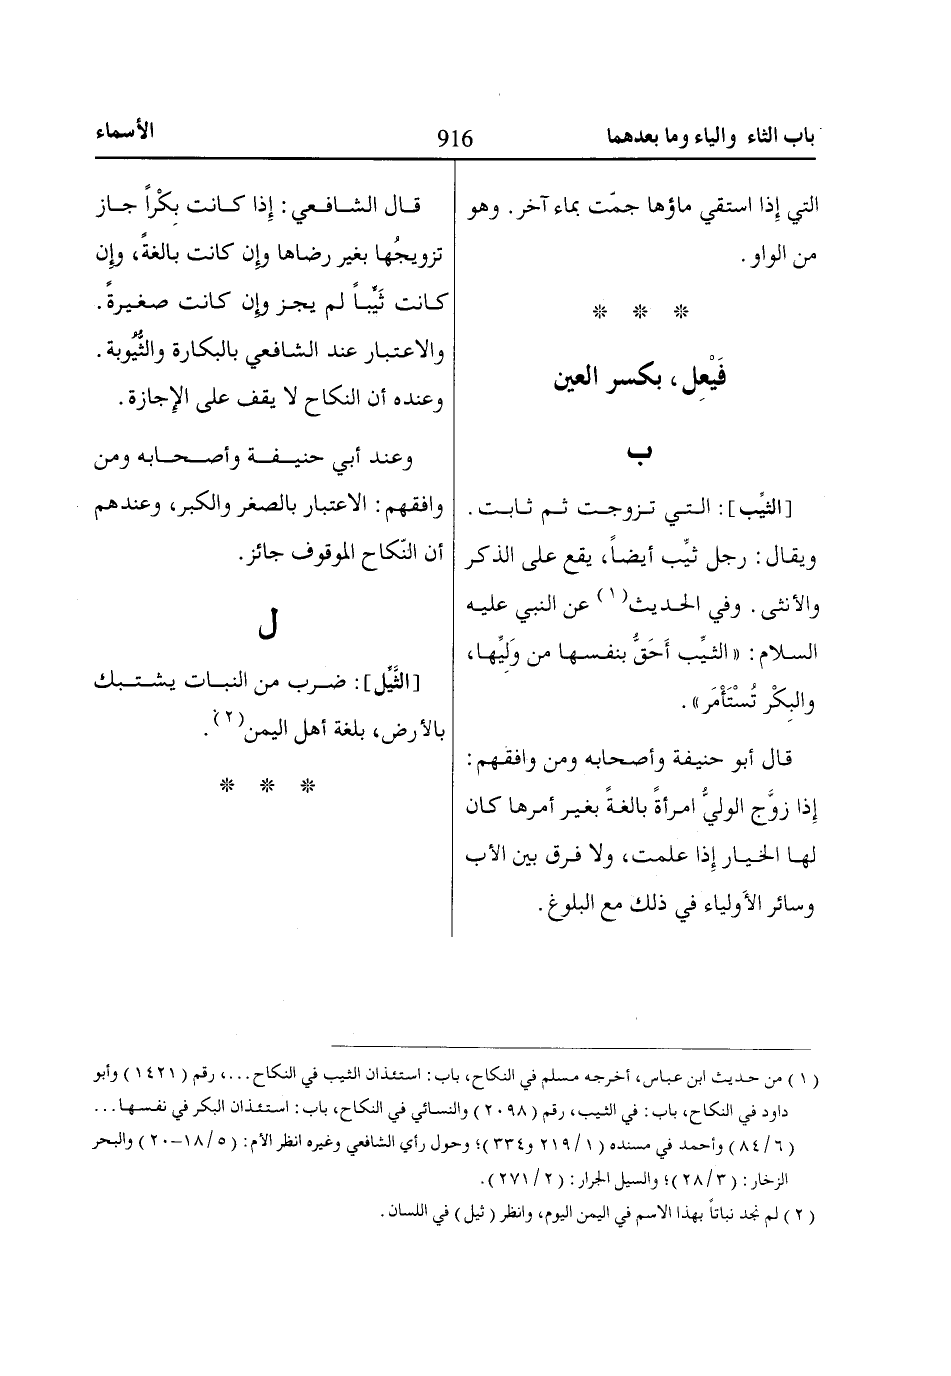 باب الثاء والياء وما بعدهما
916
الأسماء
التي إذا استقي ماؤها جمّت بماء آخر. وهو
من الواو.
* * *
فَيْعِل، بكسر العين
ب
[الثيِّب]: التي تزوجت ثم ثابت.
ويقال: رجل ثيِّب أيضاً، يقع على الذكر
والأنثى. وفي الحديث(١) عن النبي عليه
السلام: «الثيِّب أَحَقُّ بنفسها من وَليِّها،
والبِكْر تُسْتَأْمَر».
قال أبو حنيفة وأصحابه ومن وافقهم:
إذا زوَّج الوليُّ امرأةً بالغةً بغير أمرها كان
لها الخيار إذا علمت، ولا فرق بين الأب
وسائر الأولياء في ذلك مع البلوغ.
قال الشافعي: إذا كانت بِكْراً جاز
تزويجُها بغير رضاها وإن كانت بالغةً، وإن
كانت ثَيِّباً لم يجز وإن كانت صغيرةً.
والاعتبار عند الشافعي بالبكارة والثُّيُوبة.
وعنده أن النكاح لا يقف على الإجازة.
وعند أبي حنيفة وأصحابه ومن
وافقهم: الاعتبار بالصغر والكبر، وعندهم
أن النّكاح الموقوف جائز.
ل
[الثَّيِّل]: ضرب من النبات يشتبك
بالأرض، بلغة أهل اليمن(٢).
* * *
(١) من حديث ابن عباس، أخرجه مسلم في النكاح، باب: استئذان الثيب في النكاح...، رقم (١٤٢١) وأبو
داود في النكاح، باب: في الثيب، رقم (٢٠٩٨) والنسائي في النكاح، باب: استئذان البكر في نفسها...
(٨٤/٦) وأحمد في مسنده (٢١٩/١ و٣٣٤)؛ وحول رأي الشافعي وغيره انظر الأم: (١٨/٥–٢٠) والبحر
الزخار: (٢٨/٣)؛ والسيل الجرار: (٢٧١/٢).
(٢) لم نجد نباتاً بهذا الاسم في اليمن اليوم، وانظر (ثيل) في اللسان.